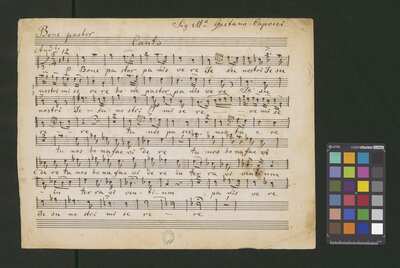 Bone pastor Sig. M.º Gaetano Capocci
Canto
And.te
Bone pastor panis vere Je su nostri Je su
nostri mi se re re bo ne pastor pa nis ve re Je su
nostri Je su nostri mi se re
re re tu nos pa sce nos tu e re
tu nos bona fac vi de re tu nos bona fac vi
de re tu nos bona fac vi de re in ter ra vi ven tium
in ter ra vi ven ti um pa nis ve re
Je su no stri mi se re re